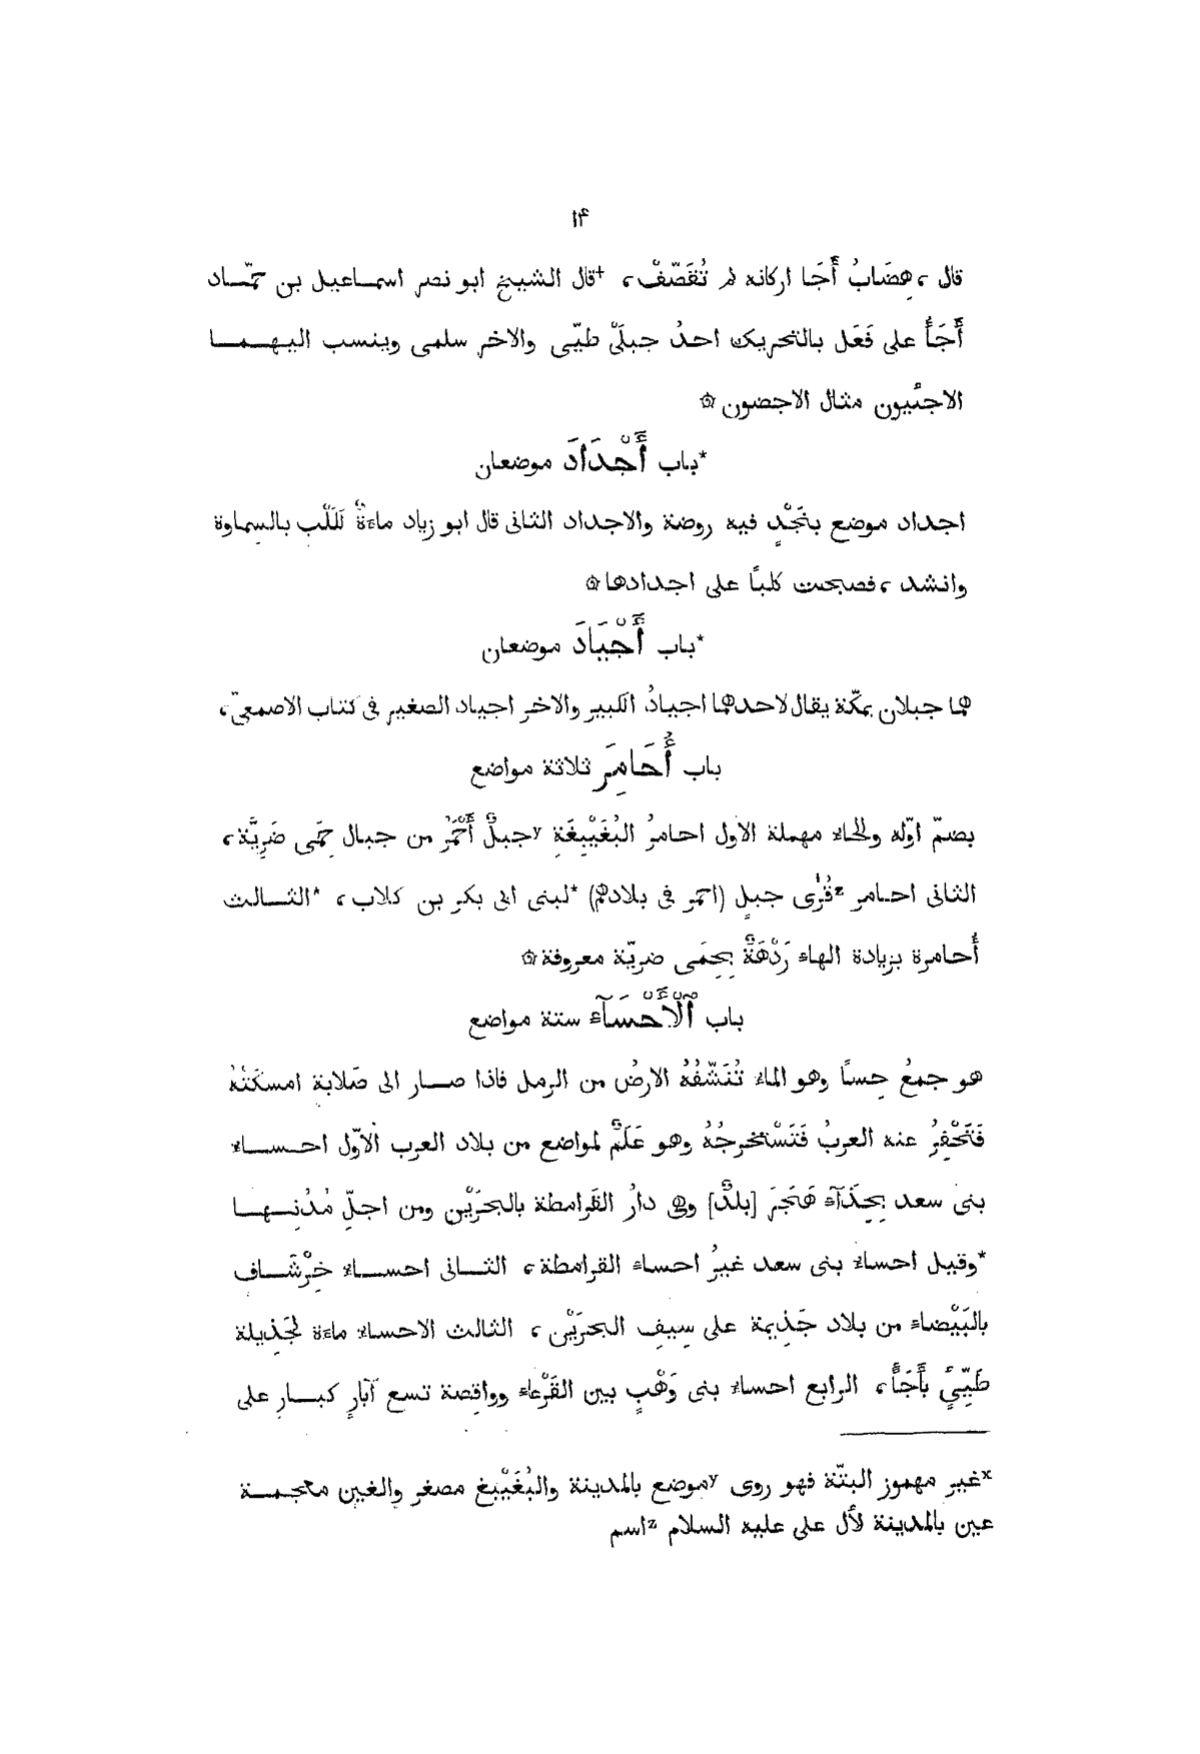 ١۴
قال ، هِضَابُ أَجَا اركانه لم تُقَصَّفْ، +قال الشيخ ابو نصر اسماعيل بن حمّاد
أَجَأُ على فَعَل بالتحريك احدُ جبلَىْ طيّى والاخر سلمى وينسب اليهما
الاجئيون مثال الاجعيون ۞
*باب أَجْدَادَ موضعان
اجداد موضع بنَجْدٍ فيه روضة والاجداد الثانى قال ابو زياد ماءة لكَلْب بالسماوة
وانشد ، فصبحت كلبًا على اجدادها ۞
*باب أَجْيَادَ موضعان
هما جبلان بمكّة يقال لاحدهما اجيادُ الكبير والاخر اجياد الصغير فى كتاب الاصمعىّ،
باب أُحَامِرَ ثلاثة مواضع
بضمّ اوّله والحاء مهملة الاول احامرُ البُغَيْبِغَةِ yجبلٌ أَحْمَرُ من جبال حِمَى ضَرِيَّة،
الثانى احامر zقُرَى جبلٍ (احمر فى بلادهم) *لبنى ابى بكر بن كلاب، *الثالث
أُحامرة بزيادة الهاء رَدْهَةٌ بحِمَى ضريّة معروفة ۞
باب ٱلْأَحْسَآء ستة مواضع
هو جمعُ حِسىً وهو الماء تُنَشِّفُهُ الارضُ من الرمل فاذا صار الى صَلابة امسكَتْهُ
فَتَحْفِرُ عنه العربُ فَتَسْتخرجُهُ وهو عَلَمٌ لمواضع من بلاد العرب الاوّل احساء
بنى سعد بحِذَآء هَجَرَ [بلدٌ] وهى دارُ القَرامطة بالبحرَيْن ومن اجلّ مُدُنها
*وقيل احساء بنى سعد غيرُ احساء القرامطة، الثانى احساء خِرْشَاف
بالبَيْضاء من بلاد جَذِيمة على سِيفِ البحرَيْن، الثالث الاحساء ماءة لجَدِيلة
طَيِّىءٍ بأَجَأٍ، الرابع احساء بنى وَهْبٍ بين القَرْعاء وواقِصة تسع آبارٍ كبارٍ على
xغير مهموز البتّة فهو روى yموضع بالمدينة والبُغَيْبغ مصغر والغين معجمة
عين بالمدينة لآل على عليه السلام zاسم